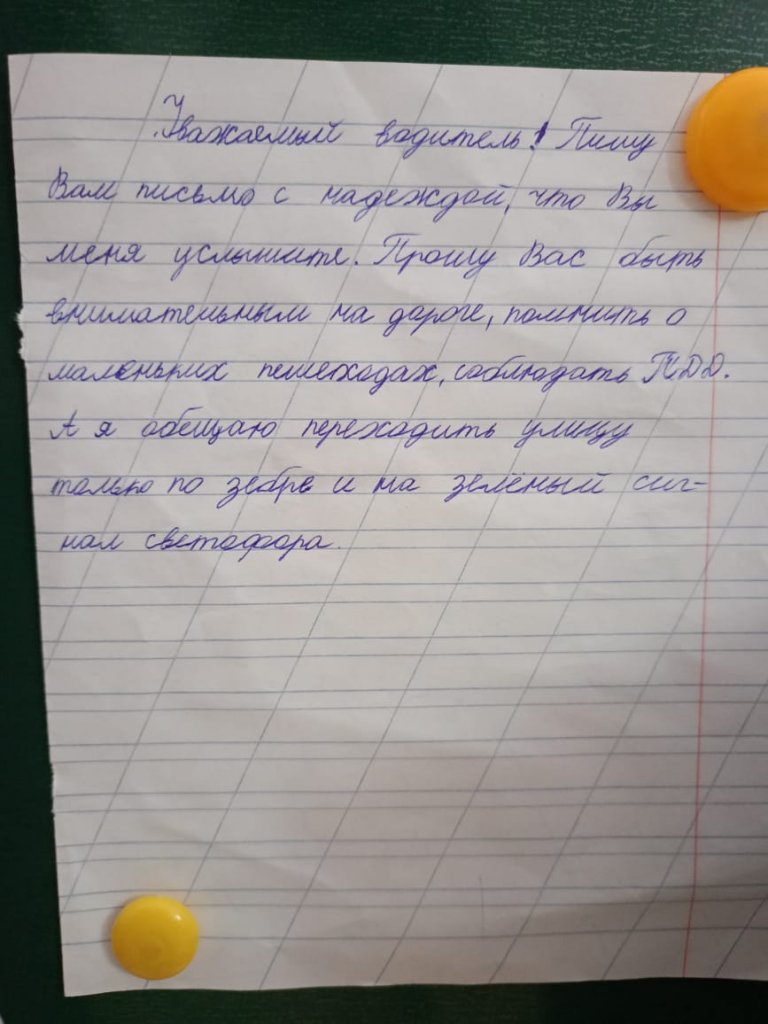 Уважаемый водитель! Пишу
Вам письмо с надеждой, что Вы
меня услышите. Прошу Вас быть
внимательным на дороге, помнить о
маленьких пешеходах, соблюдать ПДД.
А я обещаю переходить улицу
только по зебре и на зелёный сиг-
нал светофора.